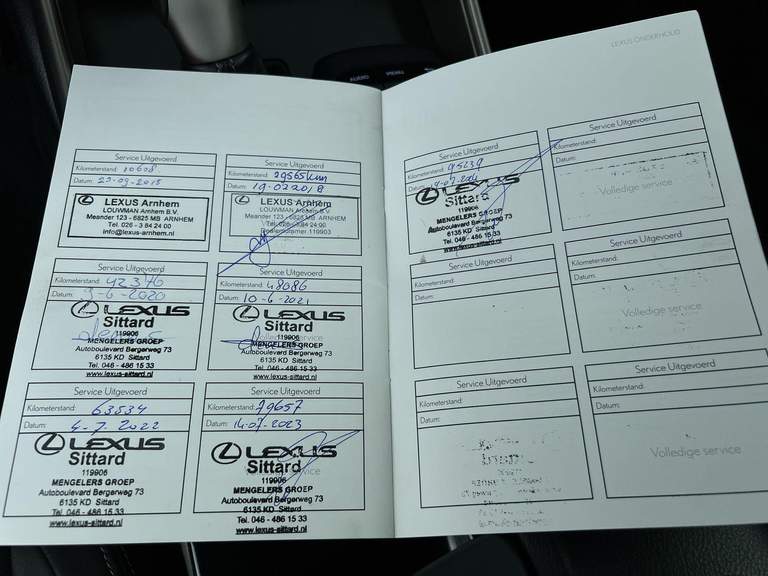 LEXUS ONDERHOUD
Service Uitgevoerd
Kilometerstand: 10608
Datum: 23-03-2015
LEXUS Arnhem
LOUWMAN Arnhem B.V.
Meander 123 - 6825 MB ARNHEM
Tel. 026 - 3 84 24 00
info@lexus-arnhem.nl
Service Uitgevoerd
Kilometerstand: 29565km
Datum: 19-02 2018
LEXUS Arnhem
LOUWMAN Arnhem B.V.
Meander 123 - 6825 MB ARNHEM
Service Uitgevoerd
Kilometerstand: 42376
Datum: 9-6-2020
LEXUS
Sittard
119906
MENGELERS GROEP
Autoboulevard Bergerweg 73
6135 KD Sittard
Tel. 046 - 486 15 33
www.lexus-sittard.nl
Service Uitgevoerd
Kilometerstand: 48086
Datum: 10-6-2021
LEXUS
Sittard
119906
MENGELERS GROEP
Autoboulevard Bergerweg 73
6135 KD Sittard
Tel. 046 - 486 15 33
www.lexus-sittard.nl
Service Uitgevoerd
Kilometerstand: 63534
Datum: 4-7-2022
LEXUS
Sittard
119906
MENGELERS GROEP
Autoboulevard Bergerweg 73
6135 KD Sittard
Tel. 046 - 486 15 33
www.lexus-sittard.nl
Service Uitgevoerd
Kilometerstand: 79657
Datum: 14-07-2023
LEXUS
Sittard
119906
MENGELERS GROEP
Autoboulevard Bergerweg 73
6135 KD Sittard
Tel. 046 - 486 15 33
www.lexus-sittard.nl
Service Uitgevoerd
Kilometerstand: 95239
Datum:
LEXUS
Sittard
119906
MENGELERS GROEP
Autoboulevard Bergerweg 73
6135 KD Sittard
Tel. 046 - 486 15 33
www.lexus-sittard.nl
Service Uitgevoerd
Kilometerstand:
Datum:
Volledige service
Service Uitgevoerd
Kilometerstand:
Datum:
Service Uitgevoerd
Kilometerstand:
Datum:
Volledige service
Service Uitgevoerd
Kilometerstand:
Datum:
Service Uitgevoerd
Kilometerstand:
Datum:
Volledige service